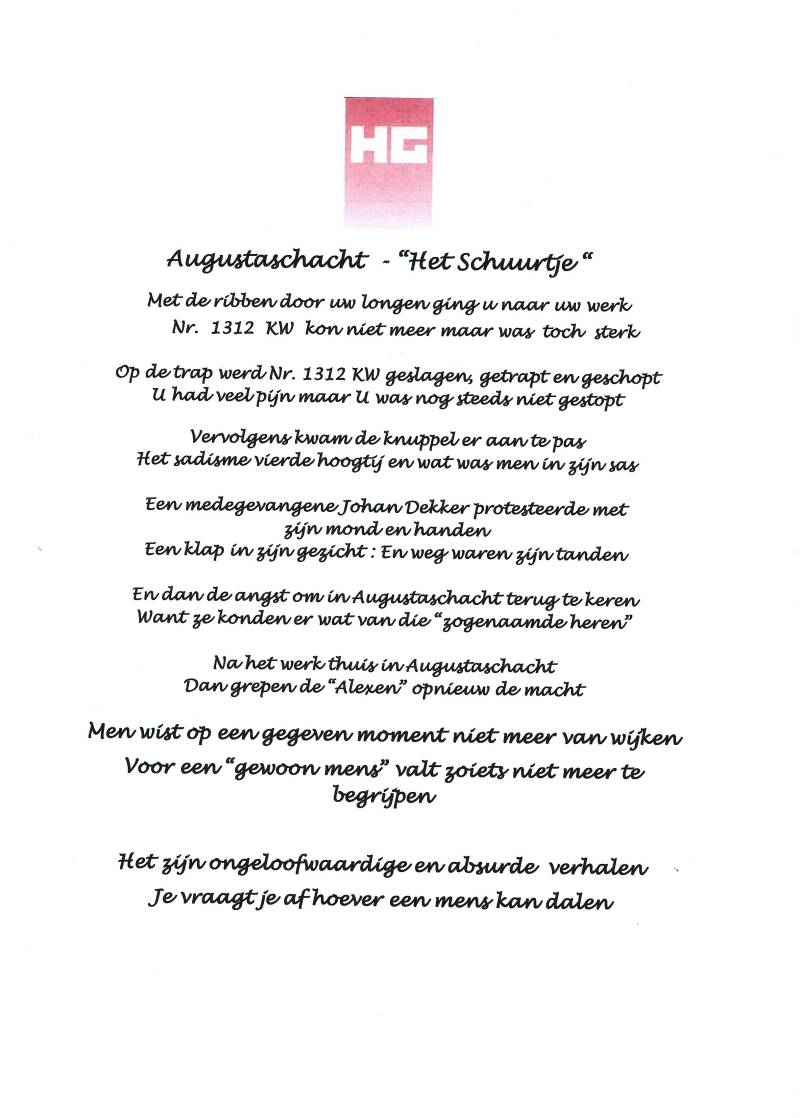 HG
Augustaschacht - "Het Schuurtje "
Met de ribben door uw longen ging u naar uw werk
Nr. 1312 KW kon niet meer maar was toch sterk
Op de trap werd Nr. 1312 KW geslagen, getrapt en geschopt
U had veel pijn maar U was nog steeds niet gestopt
Vervolgens kwam de knuppel er aan te pas
Het sadisme vierde hoogtij en wat was men in zijn sas
Een medegevangene Johan Dekker protesteerde met
zijn mond en handen
Een klap in zijn gezicht : En weg waren zijn tanden
En dan de angst om in Augustaschacht terug te keren
Want ze konden er wat van die "zogenaamde heren"
Na het werk thuis in Augustaschacht
Dan grepen de "Alexen" opnieuw de macht
Men wist op een gegeven moment niet meer van wijken
Voor een "gewoon mens" valt zoiets niet meer te
begrijpen
Het zijn ongeloofwaardige en absurde verhalen
Je vraagt je af hoever een mens kan dalen